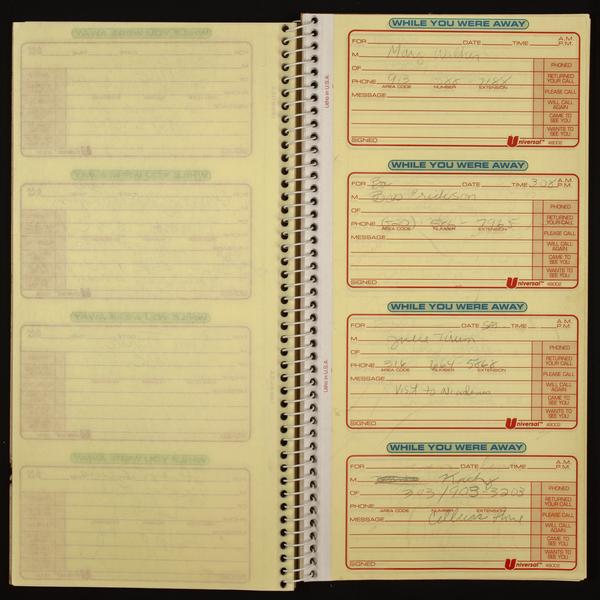 WHILE YOU WERE AWAY
FOR DATE TIME A.M. P.M.
M Mary
OF PHONED
PHONE 913 7188 RETURNED YOUR CALL
AREA CODE NUMBER EXTENSION
MESSAGE PLEASE CALL
WILL CALL AGAIN
CAME TO SEE YOU
WANTS TO SEE YOU
SIGNED Universal™ 48002
Litho in U.S.A.
WHILE YOU WERE AWAY
FOR DATE TIME 3:08 A.M. P.M.
M Bob Erickson
OF PHONED
PHONE 7965 RETURNED YOUR CALL
AREA CODE NUMBER EXTENSION
MESSAGE PLEASE CALL
WILL CALL AGAIN
CAME TO SEE YOU
WANTS TO SEE YOU
SIGNED Universal™ 48002
WHILE YOU WERE AWAY
FOR DATE TIME A.M. P.M.
M Julie
OF PHONED
PHONE 316 5868 RETURNED YOUR CALL
AREA CODE NUMBER EXTENSION
MESSAGE PLEASE CALL
Visit to WILL CALL AGAIN
CAME TO SEE YOU
WANTS TO SEE YOU
SIGNED Universal™ 48002
Litho in U.S.A.
WHILE YOU WERE AWAY
FOR DATE TIME A.M. P.M.
M Kathy
OF 303/903-3203 PHONED
PHONE RETURNED YOUR CALL
AREA CODE NUMBER EXTENSION
MESSAGE PLEASE CALL
WILL CALL AGAIN
CAME TO SEE YOU
WANTS TO SEE YOU
SIGNED Universal™ 48002